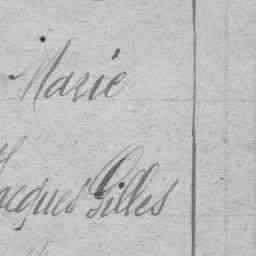 Marie
Jacques Gilles